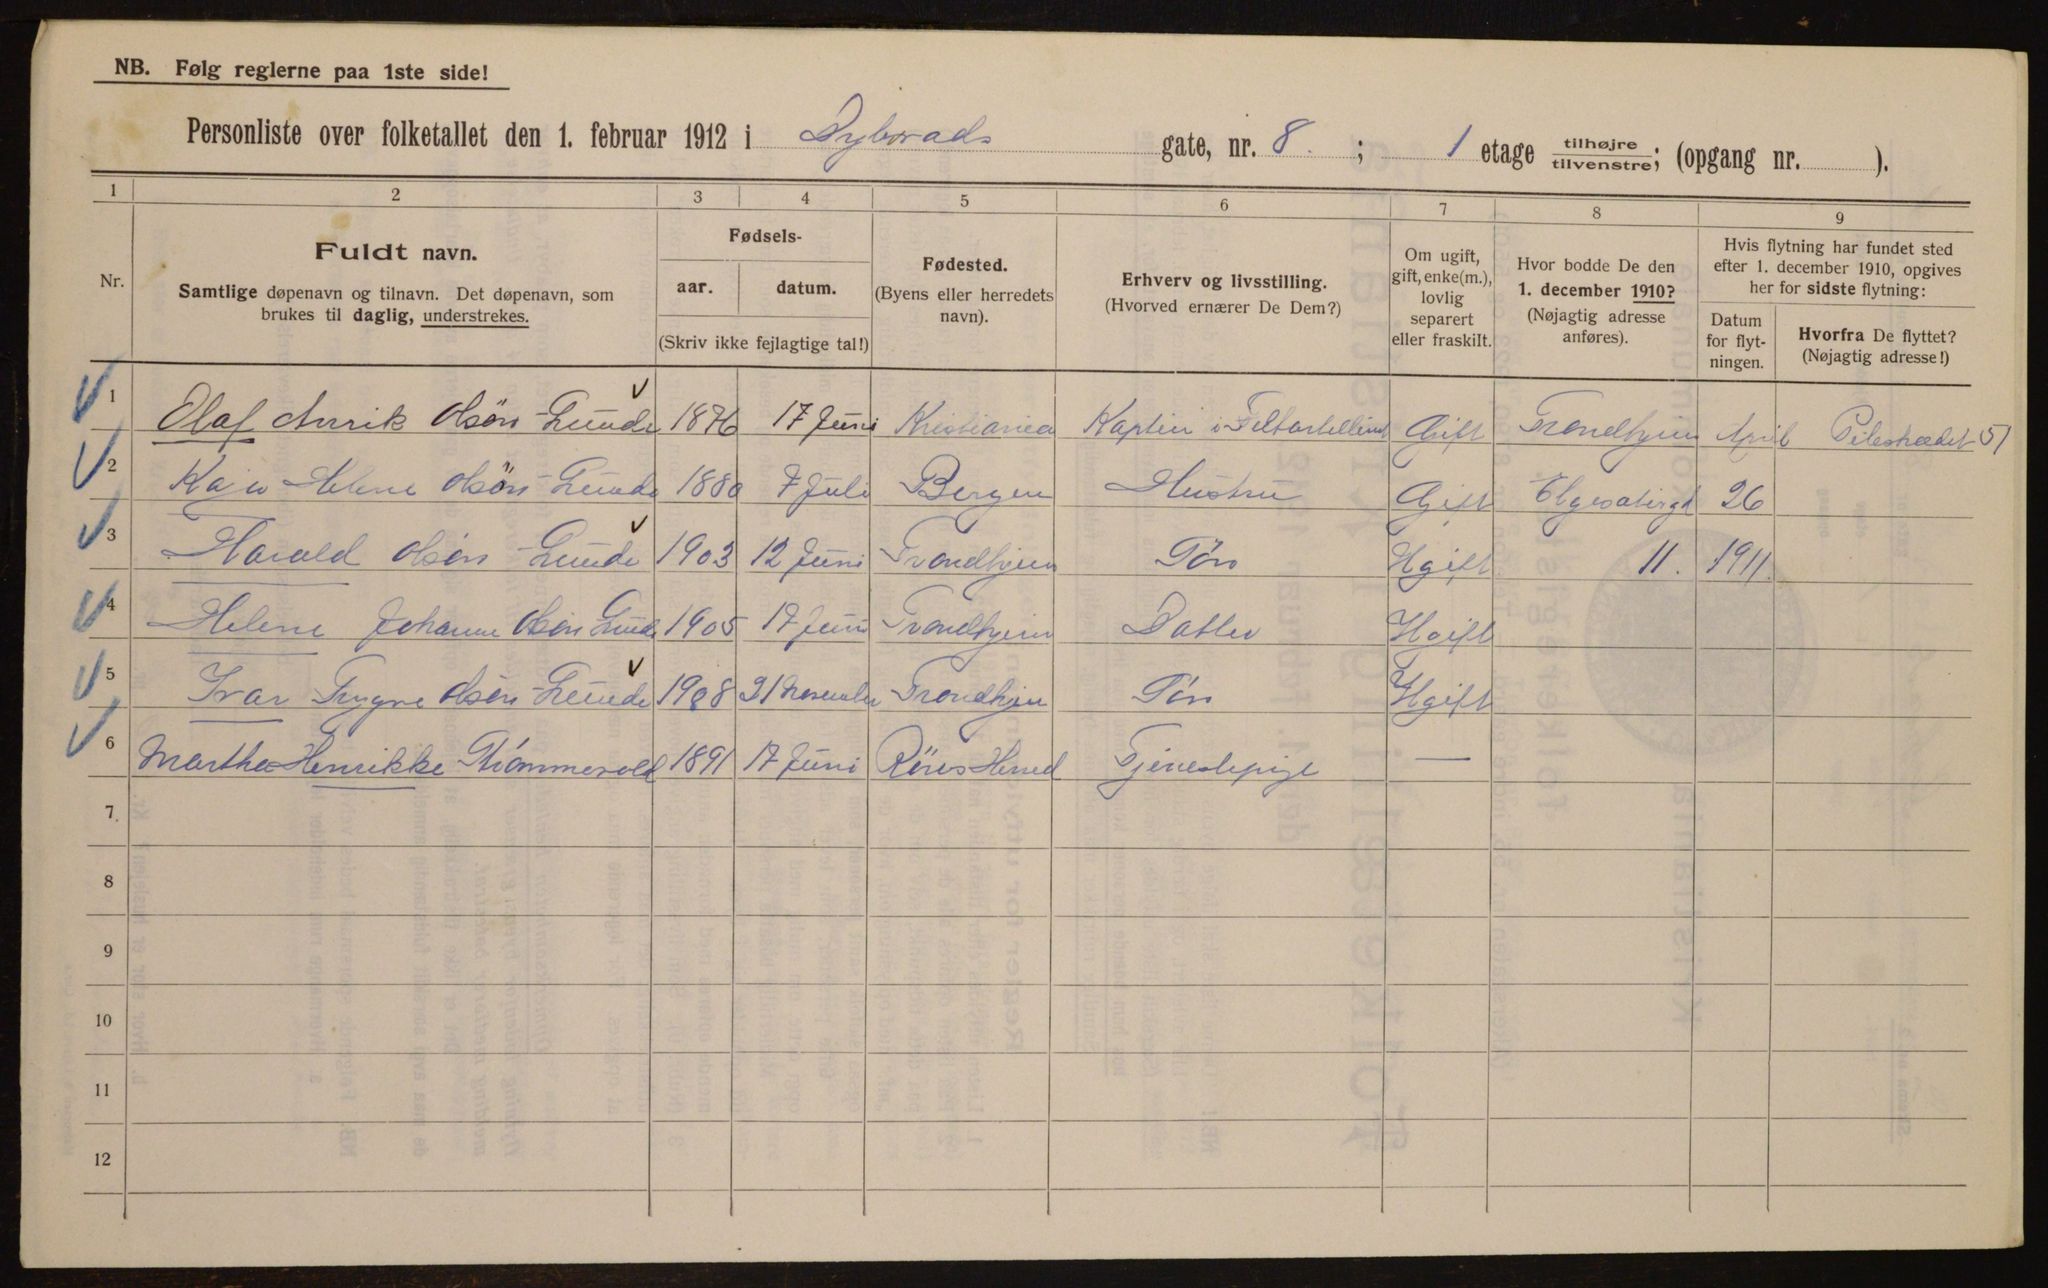 NB. Følg reglerne paa 1ste side!
Personliste over folketallet den 1. februar 1912 i Dybvads gate, nr. 8. ; 1 etage tilhøjre/tilvenstre; (opgang nr. ).
1 2 3 4 5 6 7 8 9
Nr.
Fuldt navn.
Samtlige døpenavn og tilnavn. Det døpenavn, som
brukes til daglig, understrekes.
Fødsels-
aar. datum.
(Skriv ikke fejlagtige tal!)
Fødested.
(Byens eller herredets
navn).
Erhverv og livsstilling.
(Hvorved ernærer De Dem?)
Om ugift,
gift, enke(m.),
lovlig
separert
eller fraskilt.
Hvor bodde De den
1. december 1910?
(Nøjagtig adresse
anføres).
Hvis flytning har fundet sted
efter 1. december 1910, opgives
her for sidste flytning:
Datum
for flyt-
ningen.
Hvorfra De flyttet?
(Nøjagtig adresse!)
1 Olaf Anrik Olsön Lunde 1876 17 Juni Kristiania Kaptin i Gift Trondhjem April Pilestrædet 51
2 Kaja Helene Olsön Lunde 1880 7 Juli Bergen Hustru Gift 26
3 Harald Olsön Lunde 1903 12 Juni Trondhjem Sön Ugift 11. 1911.
4 Helene Johanne Olsön Lunde 1905 17 Juni Trondhjem Datter Ugift
5 Ivar Trygve Olsön Lunde 1908 21 November Trondhjem Sön Ugift
6 Martha Henrikke 1891 17 Juni Röros Herred Tjenestepige —
7
8
9
10
11
12